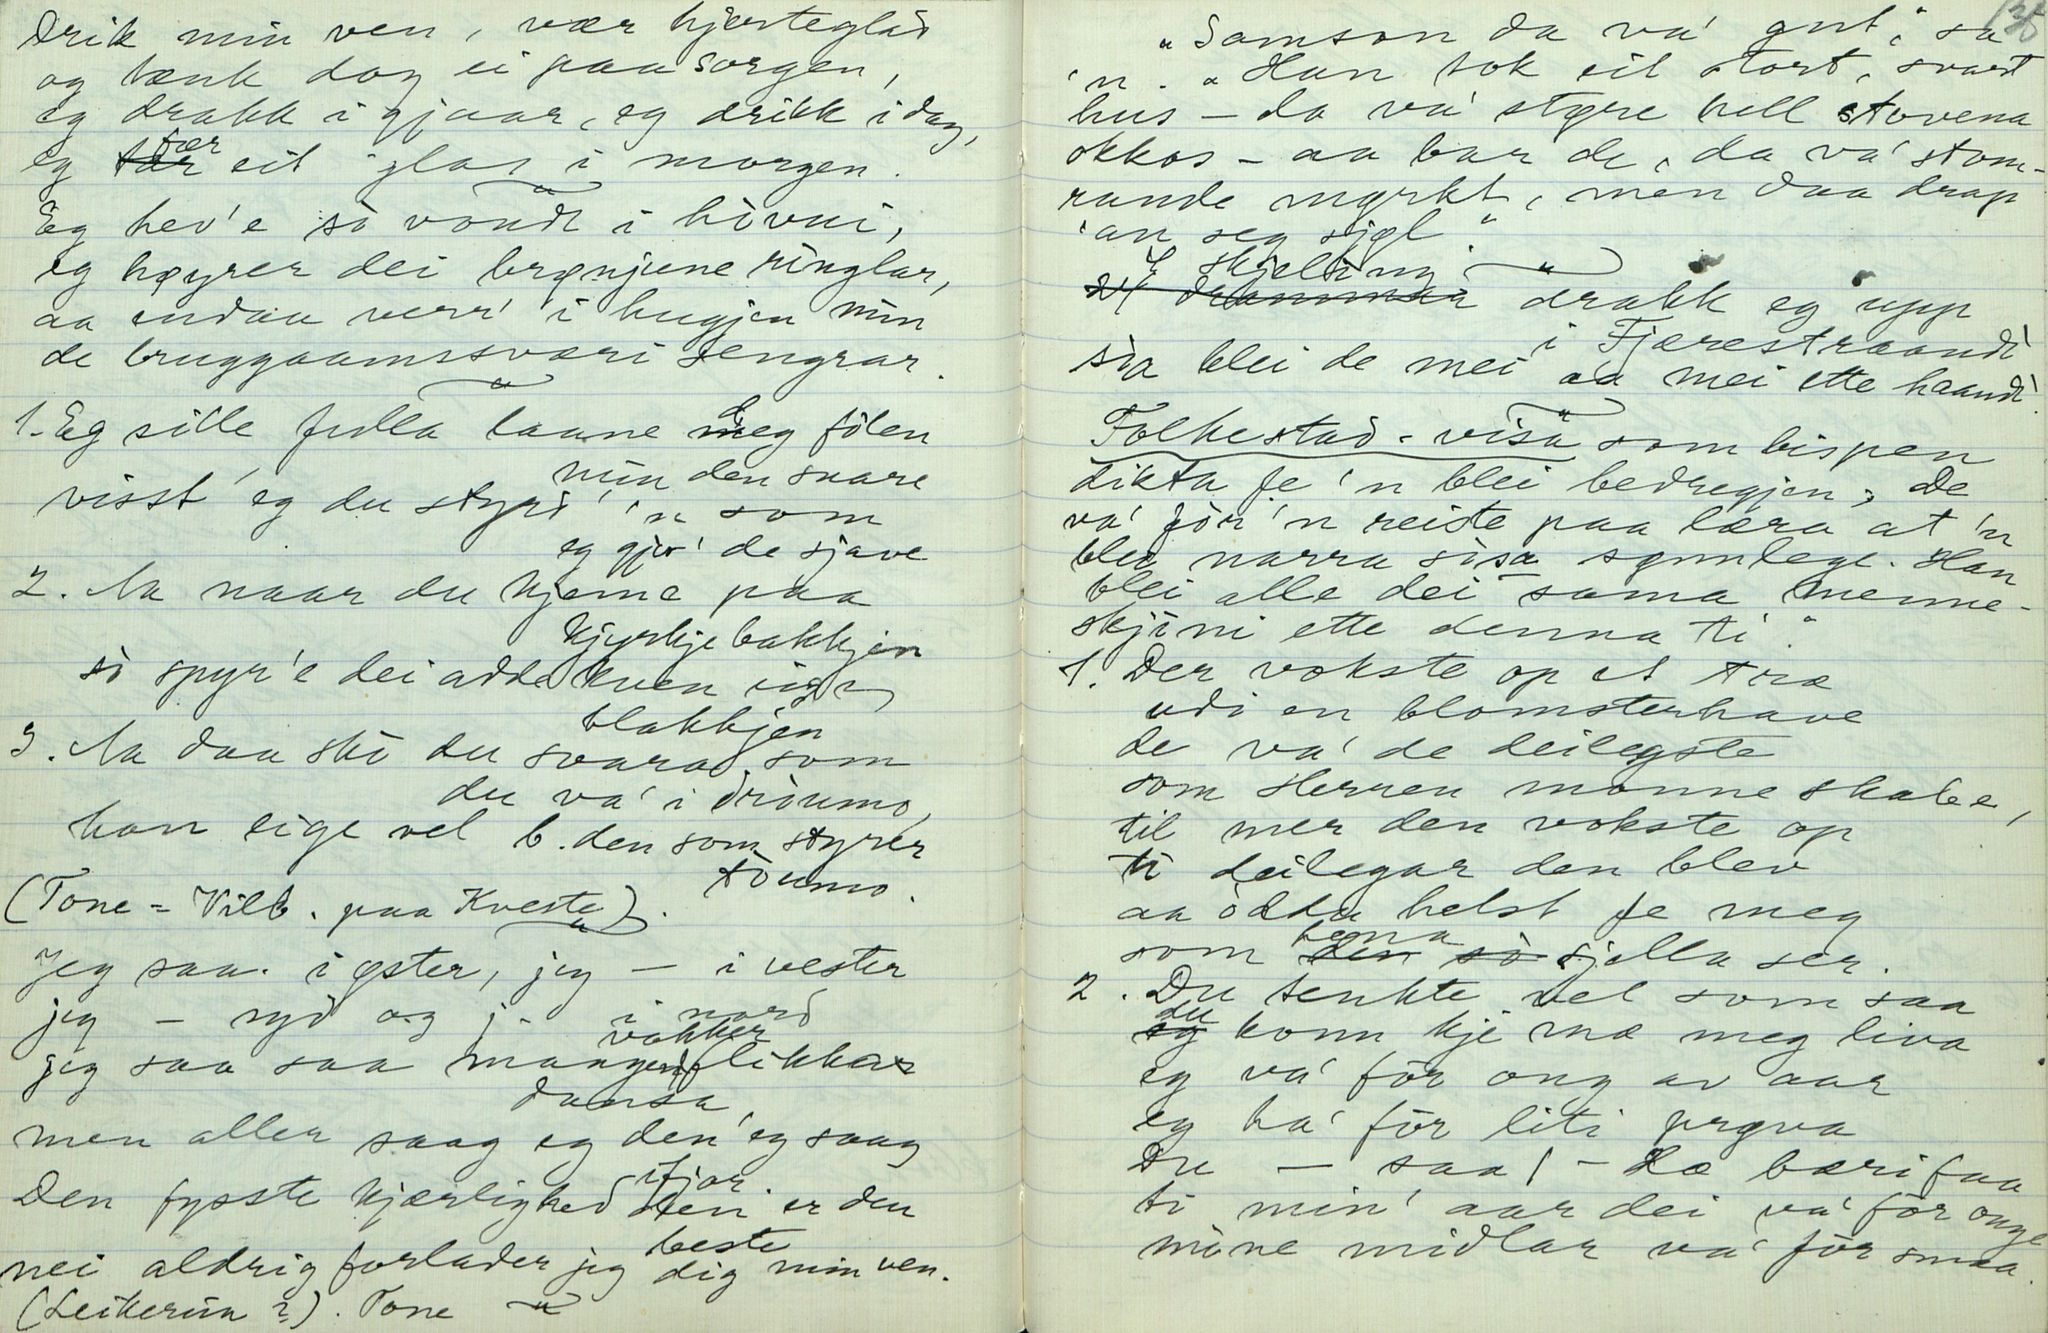 Drik min ven, vær hjerteglad
og tænk dog ei paa sorgen,
eg drakk i gjaar, eg drikk i dag,
eg fær eit glas i morgen.
Eg hev'e so vondt i hovui,
eg høyrer dei brønjune ringlar,
aa endaa verr' i hugjen min
de bruggaamssværi sengrar.
1. Eg sille fulla laane deg folen
min den snare
visst eg du styrd' 'n som
eg gjor' de sjave
2. Aa naar du kjeme paa
kjyrkjebakkjen
so spyr'e dei adde kven eig
blakkjen
3. Aa daa sko du svara som
du va' i droumo,
han eige vel b. den som styrer
toumo.
(Tone = Vilb. paa Kveste).
Jeg saa i øster, jeg — i vester
jeg — syd og j - i nord
jeg saa saa mange vakker flikker
dansa
men aller saag eg den eg saag
ifjor
Den fysste kjærlighed den er den
beste
nei aldrig forlader jeg dig min ven.
(Leikerim ?). Tone
135
"Samson da va' gut," sa
'n. "Han tok eit stort, svart
hus — da va' større hell stovena
okkos — aa bar de, da va' stom-
rande myrkt, men daa drap
'an seg sjøl"
4 skjeling drakk eg upp
i Fjærestraandi
sia blei de mei aa mei ette haandi.
Folkestad-visa som bispen
dikta fe 'n blei bedregjen; De
va' før 'n reiste paa læra at 'n
blei narra sisa sømlege. Han
blei alle dei sama menne-
skjini ette denna ti."
1. Der vokste op et træ
udi en blomsterhave
de va' de deilegste
som Herren monne skabe,
til mer den vokste op
ti deilegar den blev
aa odda helst fe meg
som tena sjella ser.
2. Du tenkte vel som saa
du konn kje mæ meg liva
eg va' for ong av aar
eg ha' for liti prøva
Du — saa / — Hæ bæri faa
ti min' aar dei va' for onge
mine midlar va' for smaa.